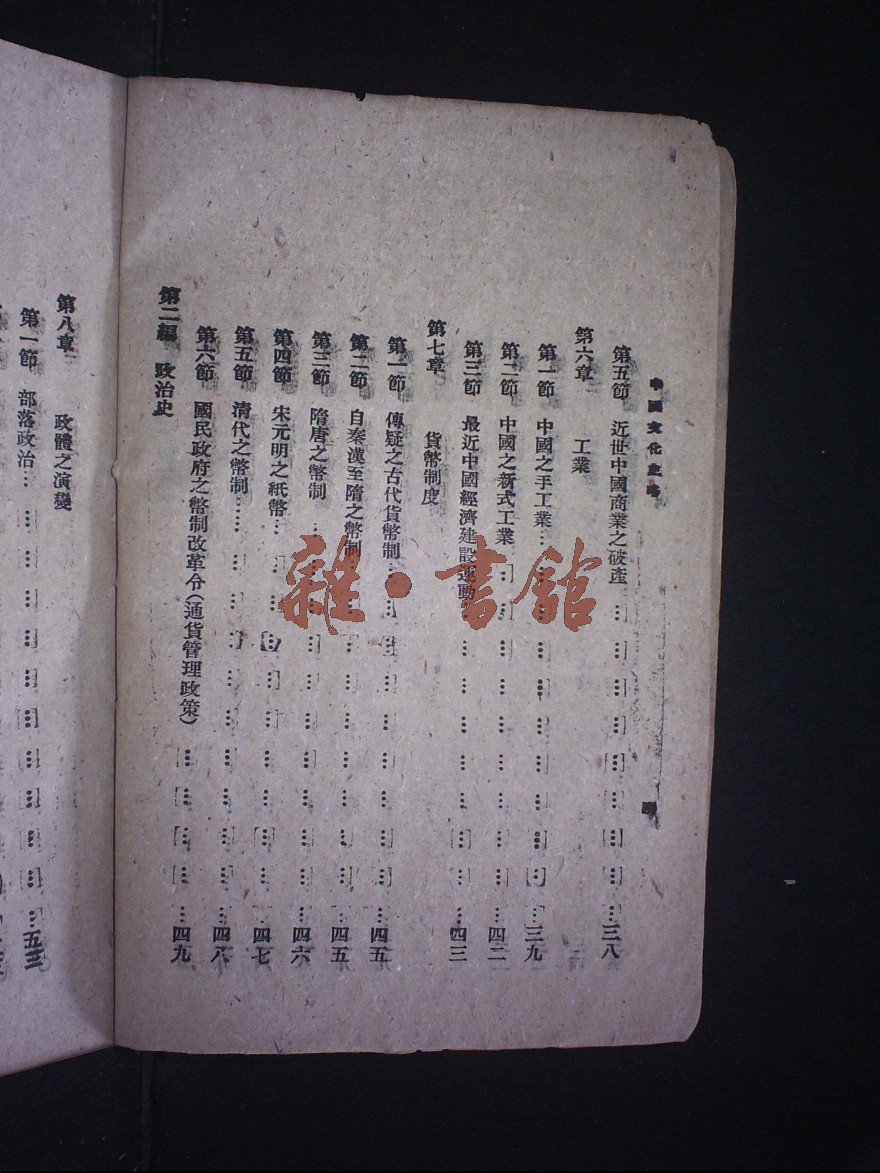 中國文化史略
四
第五節　近世中國商業之破產……三八
第六章　工業
第一節　中國之手工業……三九
第二節　中國之新式工業……四二
第三節　最近中國經濟建設運動……四三
第七章　貨幣制度
第一節　傳疑之古代貨幣制……四五
第二節　自秦漢至隋之幣制……四五
第三節　隋唐之幣制……四六
第四節　宋元明之紙幣……四七
第五節　清代之幣制……四八
第六節　國民政府之幣制改革分（通貨管理政策）……四九
第二編　政治史
第八章　政體之演變
第一節　部落政治……五三
雜·書館